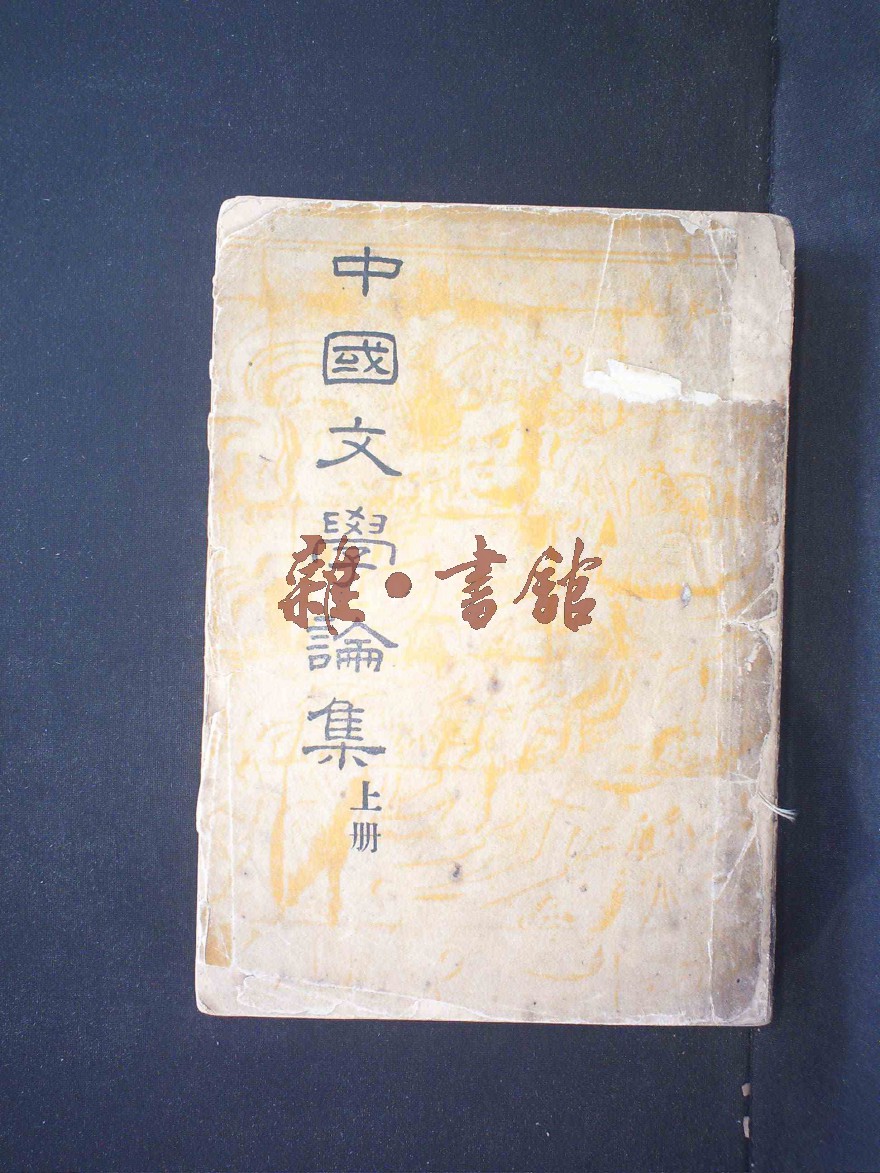 中國文學論集
上册
雜·書館